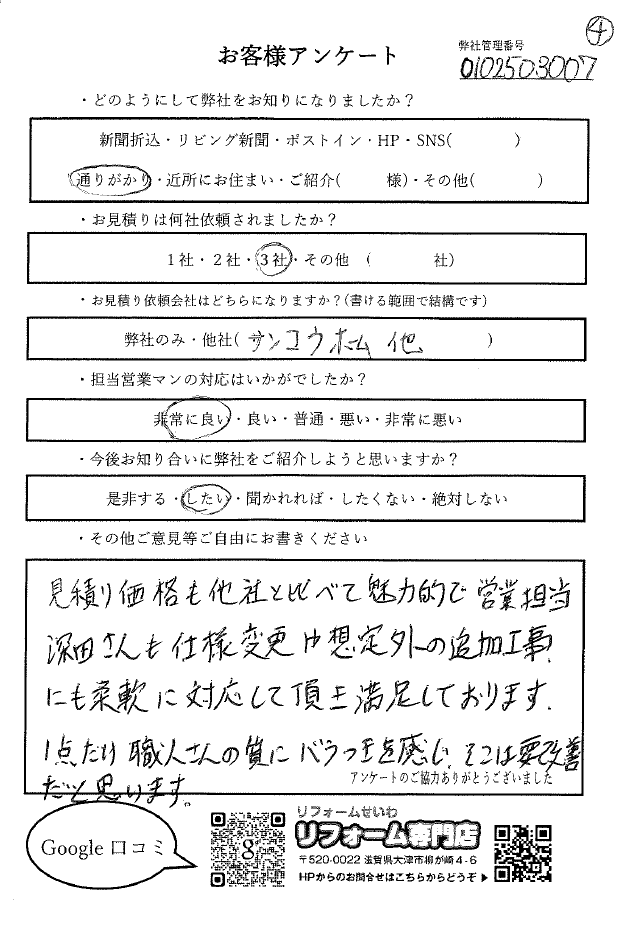 ④
お客様アンケート
弊社管理番号
0102503007
・どのようにして弊社をお知りになりましたか？
新聞折込・リビング新聞・ポストイン・HP・SNS(　　　　)
通りがかり・近所にお住まい・ご紹介(　　　様)・その他(　　　　)
・お見積りは何社依頼されましたか？
1社・2社・3社・その他　(　　　　社)
・お見積り依頼会社はどちらになりますか？(書ける範囲で結構です)
弊社のみ・他社( サンコウホーム 他　　　　)
・担当営業マンの対応はいかがでしたか？
非常に良い・良い・普通・悪い・非常に悪い
・今後お知り合いに弊社をご紹介しようと思いますか？
是非する・したい・聞かれれば・したくない・絶対しない
・その他ご意見等ご自由にお書きください
見積り価格も他社と比べて魅力的で営業担当
深田さんも仕様変更や想定外の追加工事
にも柔軟に対応して頂き満足しております.
1点だけ職人さんの質にバラつきを感じ、そこは要改善
アンケートのご協力ありがとうございました
だと思います。
Google口コミ
g
リフォームせいわ
リフォーム専門店
〒520-0022 滋賀県大津市柳が崎4-6
HPからのお問合せはこちらからどうぞ▶